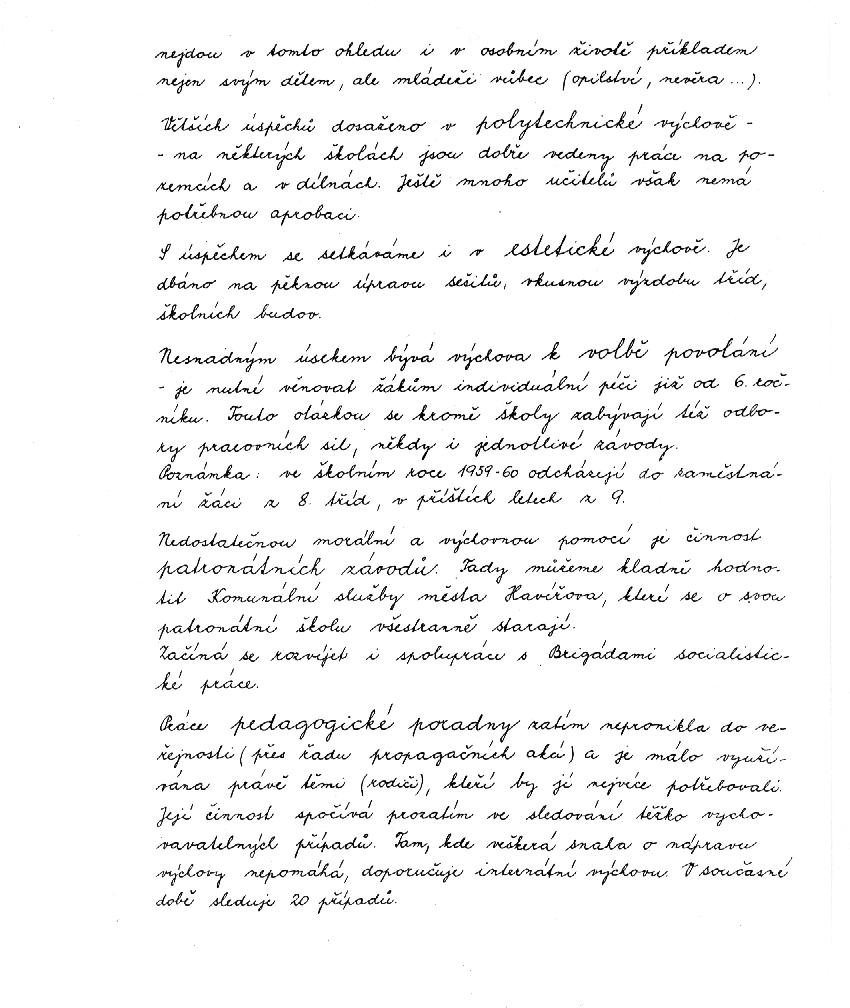 nejdou v tomto ohledu i v osobním životě příkladem
nejen svým dětem, ale mládeži vůbec (opilství, nevěra...).
Větších úspěchů dosaženo v polytechnické výchově -
- na některých školách jsou dobře vedeny práce na po-
zemcích a v dílnách. Ještě mnoho učitelů však nemá
potřebnou aprobaci.
S úspěchem se setkáváme i v estetické výchově. Je
dbáno na pěknou úpravu sešitů, vkusnou výzdobu tříd,
školních budov.
Nesnadným úsekem bývá výchova k volbě povolání
- je nutné věnovat žákům individuální péči již od 6. roč-
níku. Touto otázkou se kromě školy zabývají též odbo-
ry pracovních sil, někdy i jednotlivé závody.
Poznámka: ve školním roce 1959-60 odcházejí do zaměstná-
ní žáci z 8. tříd, v příštích letech z 9.
Nedostatečnou morální a výchovnou pomocí je činnost
patronátních závodů. Tady můžeme kladně hodno-
tit Komunální služby města Havířova, které se o svou
patronátní školu všestranně starají.
Začíná se rozvíjet i spolupráce s Brigádami socialistic-
ké práce.
Práce pedagogické poradny zatím nepronikla do ve-
řejnosti (přes řadu propagačních akcí) a je málo využí-
vána právě těmi (rodiči), kteří by jí nejvíce potřebovali.
Její činnost spočívá prozatím ve sledování těžko vycho-
vavatelných případů. Tam, kde veškerá snaha o nápravu
výchovy nepomáhá, doporučuje internátní výchovu. V současné
době sleduje 20 případů.